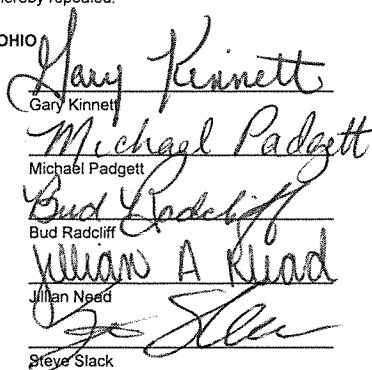 hereby repealed.
OHIO
Gary Kinnett
Gary Kinnett
Michael Padgett
Michael Padgett
Bud Radcliff
Bud Radcliff
Jillian A Nead
Jillian Nead
Steve Slack